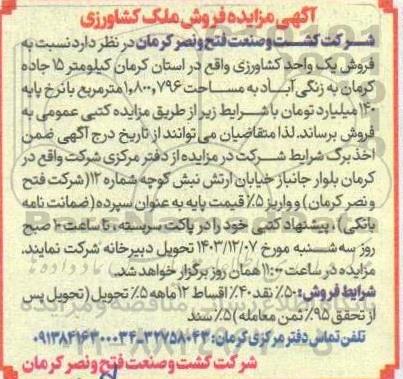 آگهی مزایده فروش ملک کشاورزی
شرکت کشت و صنعت فتح و نصر کرمان در نظر دارد نسبت به
فروش یک واحد کشاورزی واقع در استان کرمان کیلومتر ۱۵ جاده
کرمان به زنگی آباد به مساحت ۱٫۸۰۰٫۷۹۶ مترمربع با نرخ پایه
۱۴۰ میلیارد تومان با شرایط زیر از طریق مزایده کتبی عمومی به
فروش برساند. لذا متقاضیان می توانند از تاریخ درج آگهی ضمن
اخذ برگ شرایط شرکت در مزایده از دفتر مرکزی شرکت واقع در
کرمان بلوار جانباز خیابان ارتش نبش کوچه شماره ۱۲ (شرکت فتح
و نصر کرمان) و واریز ۵٪ قیمت پایه به عنوان سپرده (ضمانت نامه
بانکی)، پیشنهاد کتبی خود را در پاکت سربسته، تا ساعت ۱۰ صبح
روز سه شنبه مورخ ۱۴۰۳/۱۲/۰۷ تحویل دبیرخانه شرکت نمایند.
مزایده در ساعت ۱۱:۰۰ همان روز برگزار خواهد شد.
شرایط فروش: ۵۰٪ نقد ۴۰٪ اقساط ۱۲ ماهه ۵٪ تحویل (تحویل پس
از تحقق ۹۵٪ ثمن معامله) ۵٪ سند
تلفن تماس دفتر مرکزی کرمان: ۳۲۷۵۸۰۴۳-۰۹۱۳۸۴۱۶۳۰۰۰۳۴
شرکت کشت و صنعت فتح و نصر کرمان